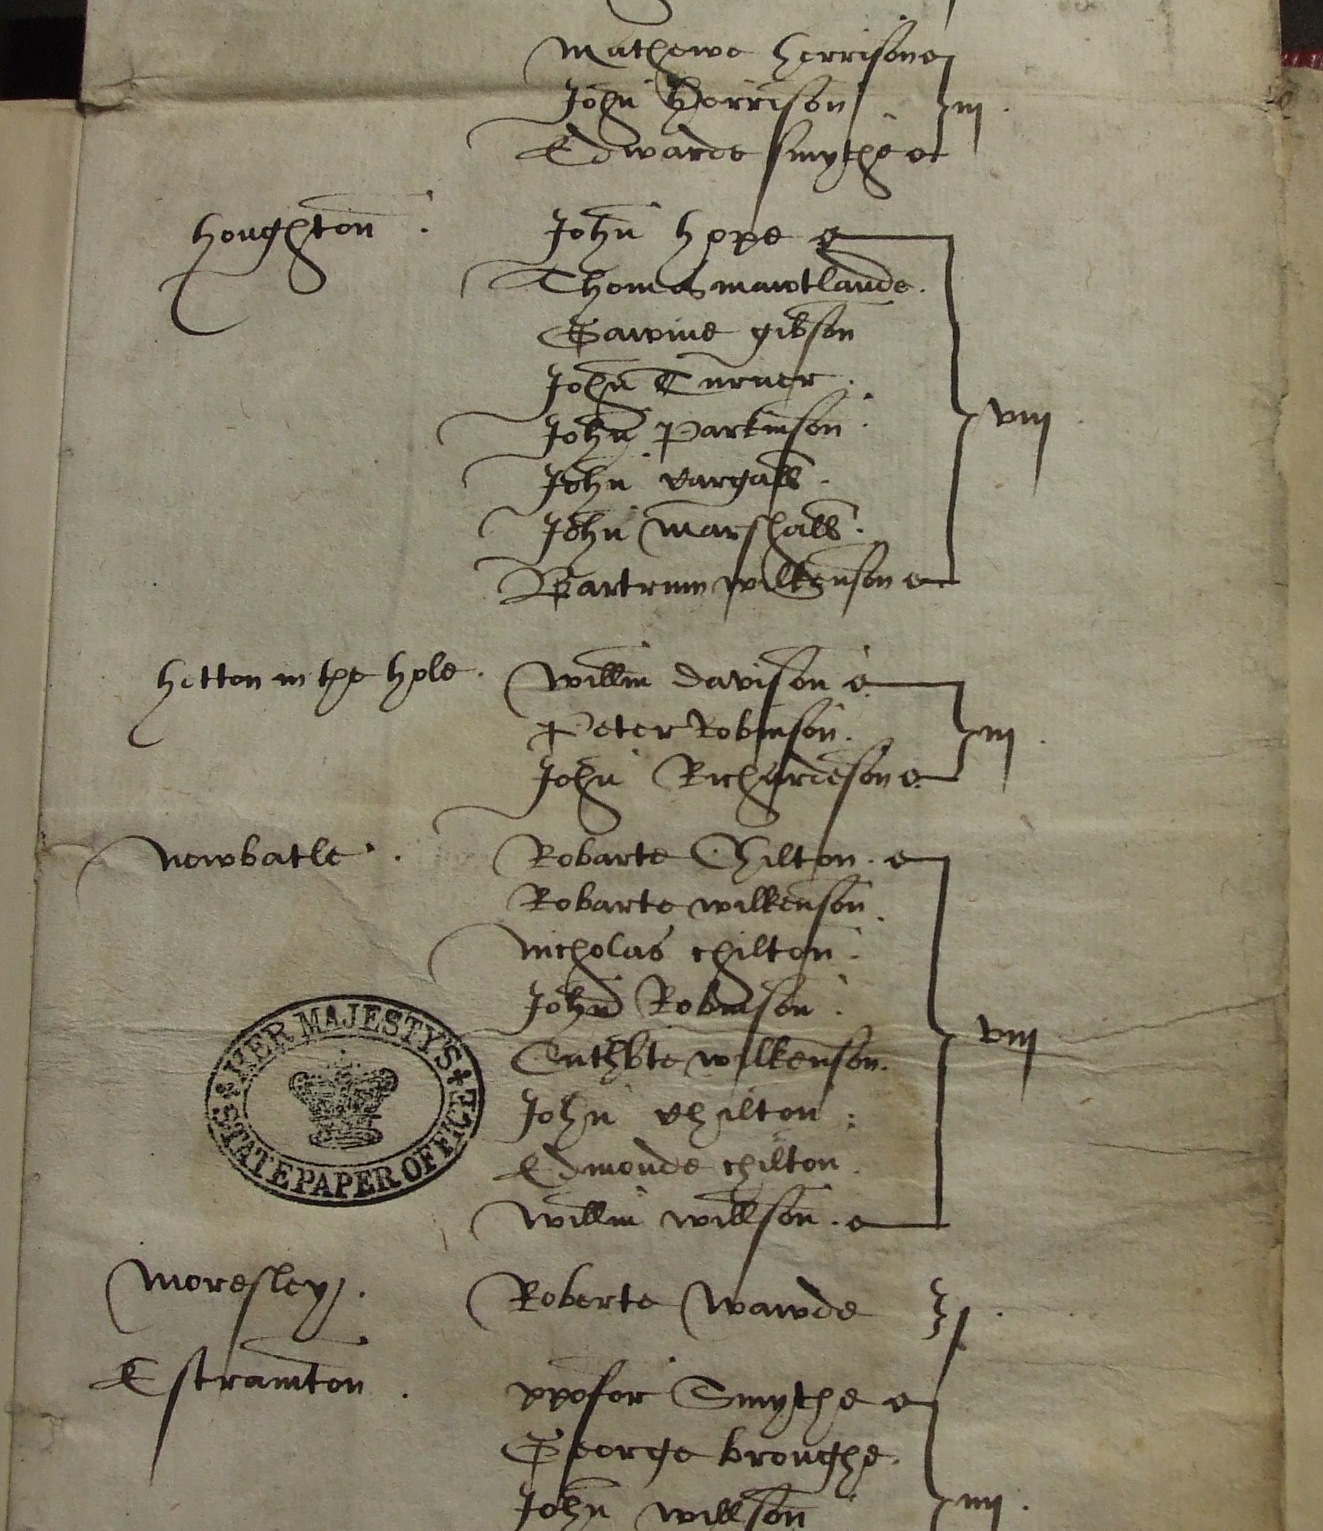 Mathewe Herrisone
John Herrison iij
Edwarde Smythe
Houghton John Hope
Thomas Mawtlande
Gawine Gibson
John Turner
John Parkinson viij
John Vargall
John Marshall
Bartrim Wilkenson
Hetton in the Hole Willm Davison
Peter Robinson iij
John Richardeson
Newbatle Robarte Chilton
Robarte Wilkenson
Nicholas Chilton
John Robinson
Cuthbte Wilkenson viij
John Chilton
Edmonde Chilton
Willm Willson
HER MAJESTY'S STATE PAPER OFFICE
Moresley Roberte Wawde j
Estramton Smythe
George Broughe
John Willson iiij